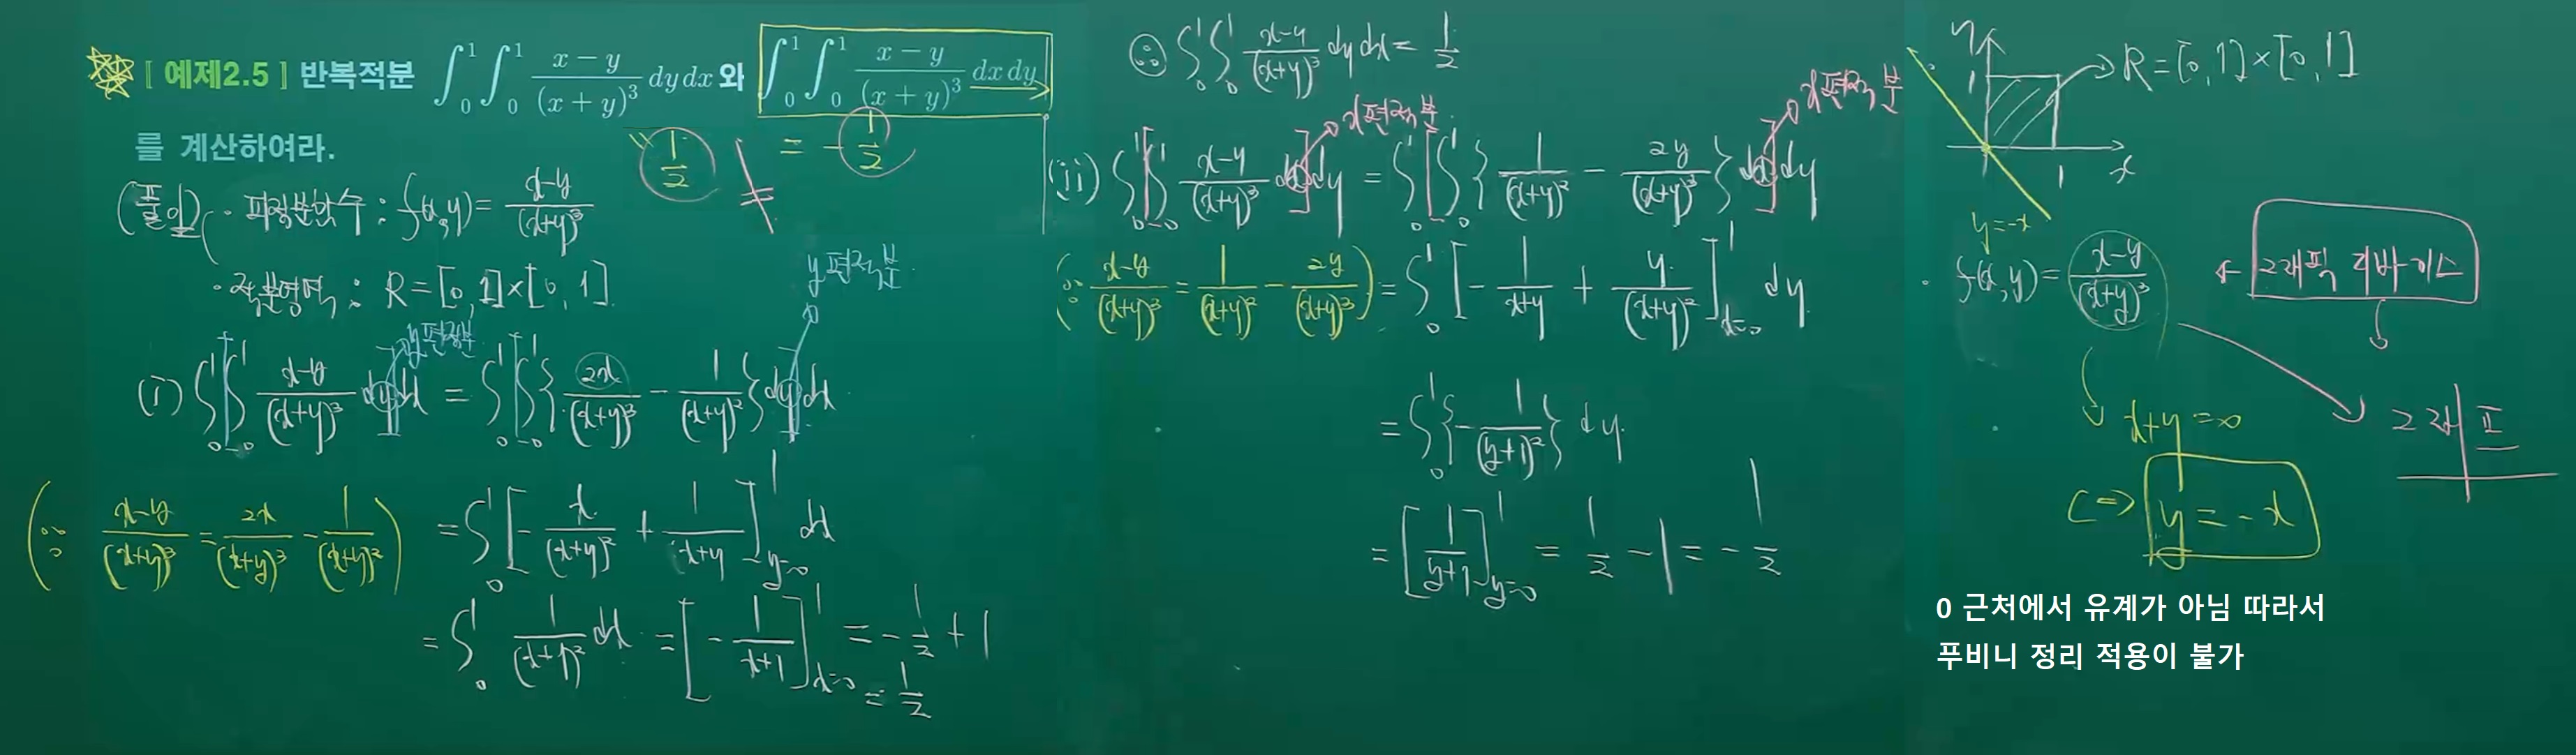 [ 예제2.5 ] 반복적분 ∫_0^1 ∫_0^1 (x-y)/(x+y)^3 dy dx 와 ∫_0^1 ∫_0^1 (x-y)/(x+y)^3 dx dy
를 계산하여라.
1/2 ≠ = -1/2
(풀이) · 피적분함수 : f(x,y) = (x-y)/(x+y)^3
· 적분영역 : R = [0,1]×[0,1]
y편적분
y편적분
(i) ∫_0^1 ∫_0^1 (x-y)/(x+y)^3 dy dx = ∫_0^1 ∫_0^1 { 2x/(x+y)^3 - 1/(x+y)^2 } dy dx
(∵ (x-y)/(x+y)^3 = 2x/(x+y)^3 - 1/(x+y)^2) = ∫_0^1 [ -x/(x+y)^2 + 1/(x+y) ]_{y=0}^1 dx
= ∫_0^1 1/(x+1)^2 dx = [ -1/(x+1) ]_{x=0}^1 = -1/2 + 1
= 1/2
∴ ∫_0^1 ∫_0^1 (x-y)/(x+y)^3 dy dx = 1/2
x편적분
x편적분
(ii) ∫_0^1 ∫_0^1 (x-y)/(x+y)^3 dx dy = ∫_0^1 ∫_0^1 { 1/(x+y)^2 - 2y/(x+y)^3 } dx dy
(∵ (x-y)/(x+y)^3 = 1/(x+y)^2 - 2y/(x+y)^3) = ∫_0^1 [ -1/(x+y) + y/(x+y)^2 ]_{x=0}^1 dy
= ∫_0^1 { -1/(y+1)^2 } dy
= [ 1/(y+1) ]_{y=0}^1 = 1/2 - 1 = -1/2
y
1
R = [0,1]×[0,1]
1
x
y=-x
· f(x,y) = (x-y)/(x+y)^3
그래픽 디바이스
그래프
x+y=0
⇔ y = -x
0 근처에서 유계가 아님 따라서
푸비니 정리 적용이 불가